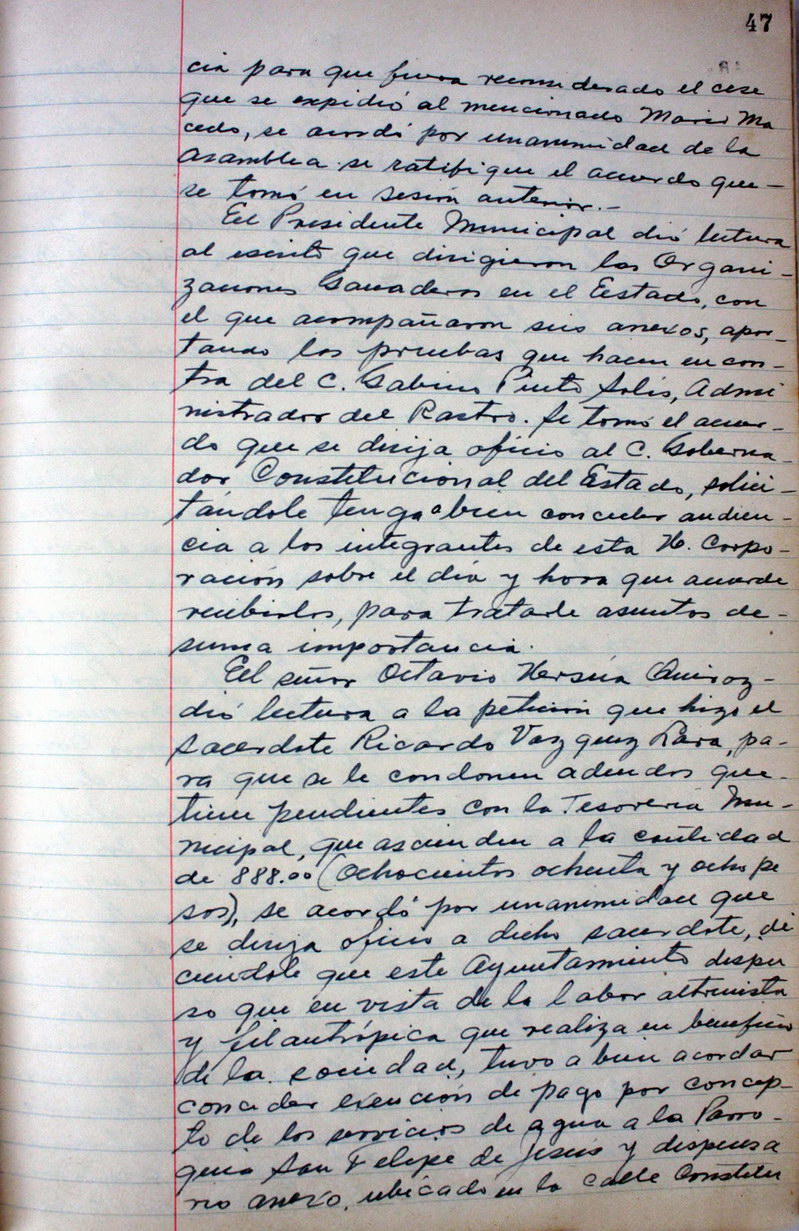 47
cia para que fuera reconsiderado el cese
que se expidió al mencionado Mario Ma
cedo, se acordó por unanimidad de la
Asamblea se ratifique el acuerdo que-
se tomó en sesión anterior.-
El Presidente Municipal dió lectura
al escrito que dirigieron las Organi-
zaciones Ganaderas en el Estado, con
el que acompañaron sus anexos, apor-
tando las pruebas que hacen en con-
tra del C. Gabino Pinto Solis, Admi
nistrador del Rastro. Se tomó el acuer-
do que se dirija oficio al C. Goberna-
dor Constitucional del Estado, solici-
tándole tenga a bien conceder audien-
cia a los integrantes de esta H. Corpo-
ración sobre el día y hora que acuerde
recibirlos, para tratarle asuntos de-
suma importancia.
El señor Octavio Quiroz-
dió lectura a la petición que hizo el
Sacerdote Ricardo Vazquez Lara, pa-
ra que se le condonen adeudos que-
tiene pendientes con la Tesorería Mu-
nicipal, que ascienden a la cantidad
de 888.00 (Ochocientos ochenta y ocho pe
sos), se acordó por unanimidad que
se dirija oficio a dicho sacerdote, di
ciendole que este Ayuntamiento dispu
so que en vista de la labor altruista
y filantrópica que realiza en beneficio
de la sociedad, tuvo a bien acordar
conceder exención de pago por concep-
to de los servicios de agua a la Parro-
quia San Felipe de Jesús y dispensa
rio anexo, ubicado en la calle Constitu